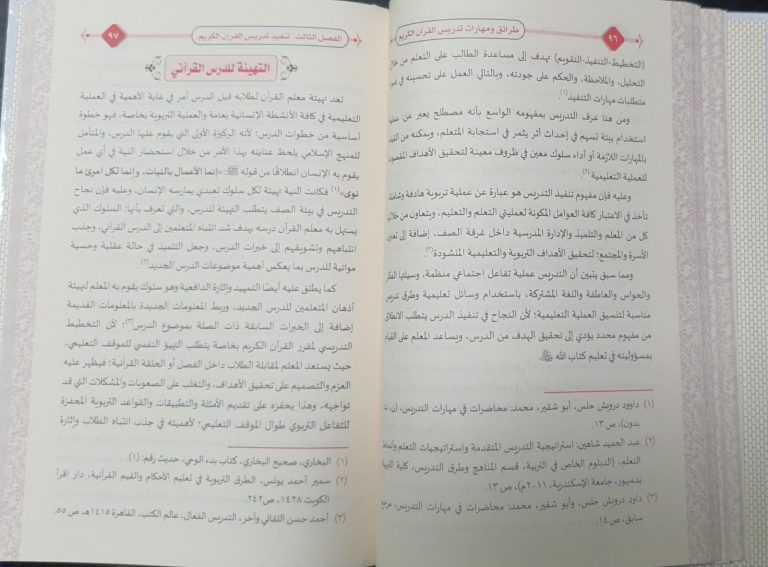 ٩٦
طرائق ومهارات تدريس القرآن الكريم
(التخطيط-التنفيذ-التقويم) تهدف إلى مساعدة الطالب على التعلم من خلال
التحليل، والملاحظة، والحكم على جودته، وبالتالي العمل على تحسينه في ضوء
متطلبات مهارات التنفيذ(١).
ومن هنا عرف التدريس بمفهومه الواسع بأنه مصطلح يعبر عن عملية
استخدام بيئة تسهم في إحداث أثر يثمر في استجابة المتعلم، ويمكنه من القيام
بالمهارات اللازمة أو أداء سلوك معين في ظروف معينة لتحقيق الأهداف المقصودة
للعملية التعليمية(٢).
وعليه فإن مفهوم تنفيذ التدريس هو عبارة عن عملية تربوية هادفة وشاملة،
تأخذ في الاعتبار كافة العوامل المكونة لعمليتي التعلم والتعليم، ويتعاون من خلالها
كل من المعلم والتلميذ والإدارة المدرسية داخل غرفة الصف، إضافة إلى تعاون
الأسرة والمجتمع؛ لتحقيق الأهداف التربوية والتعليمية المنشودة(٣).
ومما سبق يتبين أن التدريس عملية تفاعل اجتماعي منظمة، وسيلتها الفكر
والحواس والعاطفة واللغة المشتركة، باستخدام وسائل تعليمية وطرق تدريس
مناسبة لتنسيق العملية التعليمية؛ لأن النجاح في تنفيذ الدرس يتطلب الانطلاق
من مفهوم محدد يؤدي إلى تحقيق الهدف من الدرس، ويساعد المعلم على القيام
بمسؤوليته في تعليم كتاب الله ﷺ.
(١) داوود درويش حلس، أبو شقير، محمد: محاضرات في مهارات التدريس، (ن:
بدون)، ص ١٣.
(٢) عبد الحميد شاهين: استراتيجية التدريس المتقدمة واستراتيجيات التعلم وأنماط
التعلم، (الدبلوم الخاص في التربية، قسم المناهج وطرق التدريس، كلية التربية
بدمنهور، جامعة الإسكندرية، ٢٠١١م)، ص ١٣.
(٣) داود درويش حلس، وأبو شقير، محمد: محاضرات في مهارات التدريس، مرجع
سابق، ص ١٤.
الفصل الثالث: تنفيذ تدريس القرآن الكريم
٩٧
التهيئة للدرس القرآني
تعد تهيئة معلم القرآن لطلابه قبل الدرس أمر في غاية الأهمية في العملية
التعليمية في كافة الأنشطة الإنسانية بعامة والعملية التربوية بخاصة، فهو خطوة
أساسية من خطوات الدرس؛ لأنه الركيزة الأولى التي يقوم عليها الدرس، والمتأمل
للمنهج الإسلامي يلحظ عنايته بهذا الأمر من خلال استحضار النية في أي عمل
يقوم به الإنسان انطلاقًا من قوله ﷺ: «إنما الأعمال بالنيات، وإنما لكل امرئ ما
نوى»(١) فكانت النية تهيئة لكل سلوك تعبدي يمارسه الإنسان، وعليه فإن نجاح
التدريس في بيئة الصف يتطلب التهيئة للدرس، والتي تعرف بأنها: السلوك الذي
يستهل به معلم القرآن درسه بهدف شد انتباه المتعلمين إلى الدرس القرآني، وجذب
انتباههم وتشويقهم إلى خبرات الدرس، وجعل التلميذ في حالة عقلية وحسية
مواتية للدرس بما يعكس أهمية موضوعات الدرس الجديد(٢).
كما يطلق عليه أيضًا التمهيد وإثارة الدافعية وهو سلوك يقوم به المعلم لتهيئة
أذهان المتعلمين للدرس الجديد، وربط المعلومات الجديدة بالمعلومات القديمة
إضافة إلى الخبرات السابقة ذات الصلة بموضوع الدرس(٣)؛ لأن التخطيط
التدريسي لمقرر القرآن الكريم بخاصة يتطلب التهيؤ النفسي للموقف التعليمي،
حيث يستعد المعلم لمقابلة الطلاب داخل الفصل أو الحلقة القرآنية؛ فيظهر عليه
العزم والتصميم على تحقيق الأهداف، والتغلب على الصعوبات والمشكلات التي قد
تواجهه، وهذا يحفزه على تقديم الأمثلة والتطبيقات والقواعد التربوية المحفزة
للتفاعل التربوي طوال الموقف التعليمي؛ لأهميته في جذب انتباه الطلاب وإثارة
(١) البخاري، صحيح البخاري، كتاب بدء الوحي، حديث رقم: (١).
(٢) سمير أحمد يونس، الطرق التربوية في تعليم الأحكام والقيم القرآنية، دار اقرأ
الكويت ١٤٢٨، ص٢٤٢.
(٣) أحمد حسن اللقاني وآخر، التدريس الفعال، عالم الكتب، القاهرة ١٤١٥هـ، ص ٥٥.